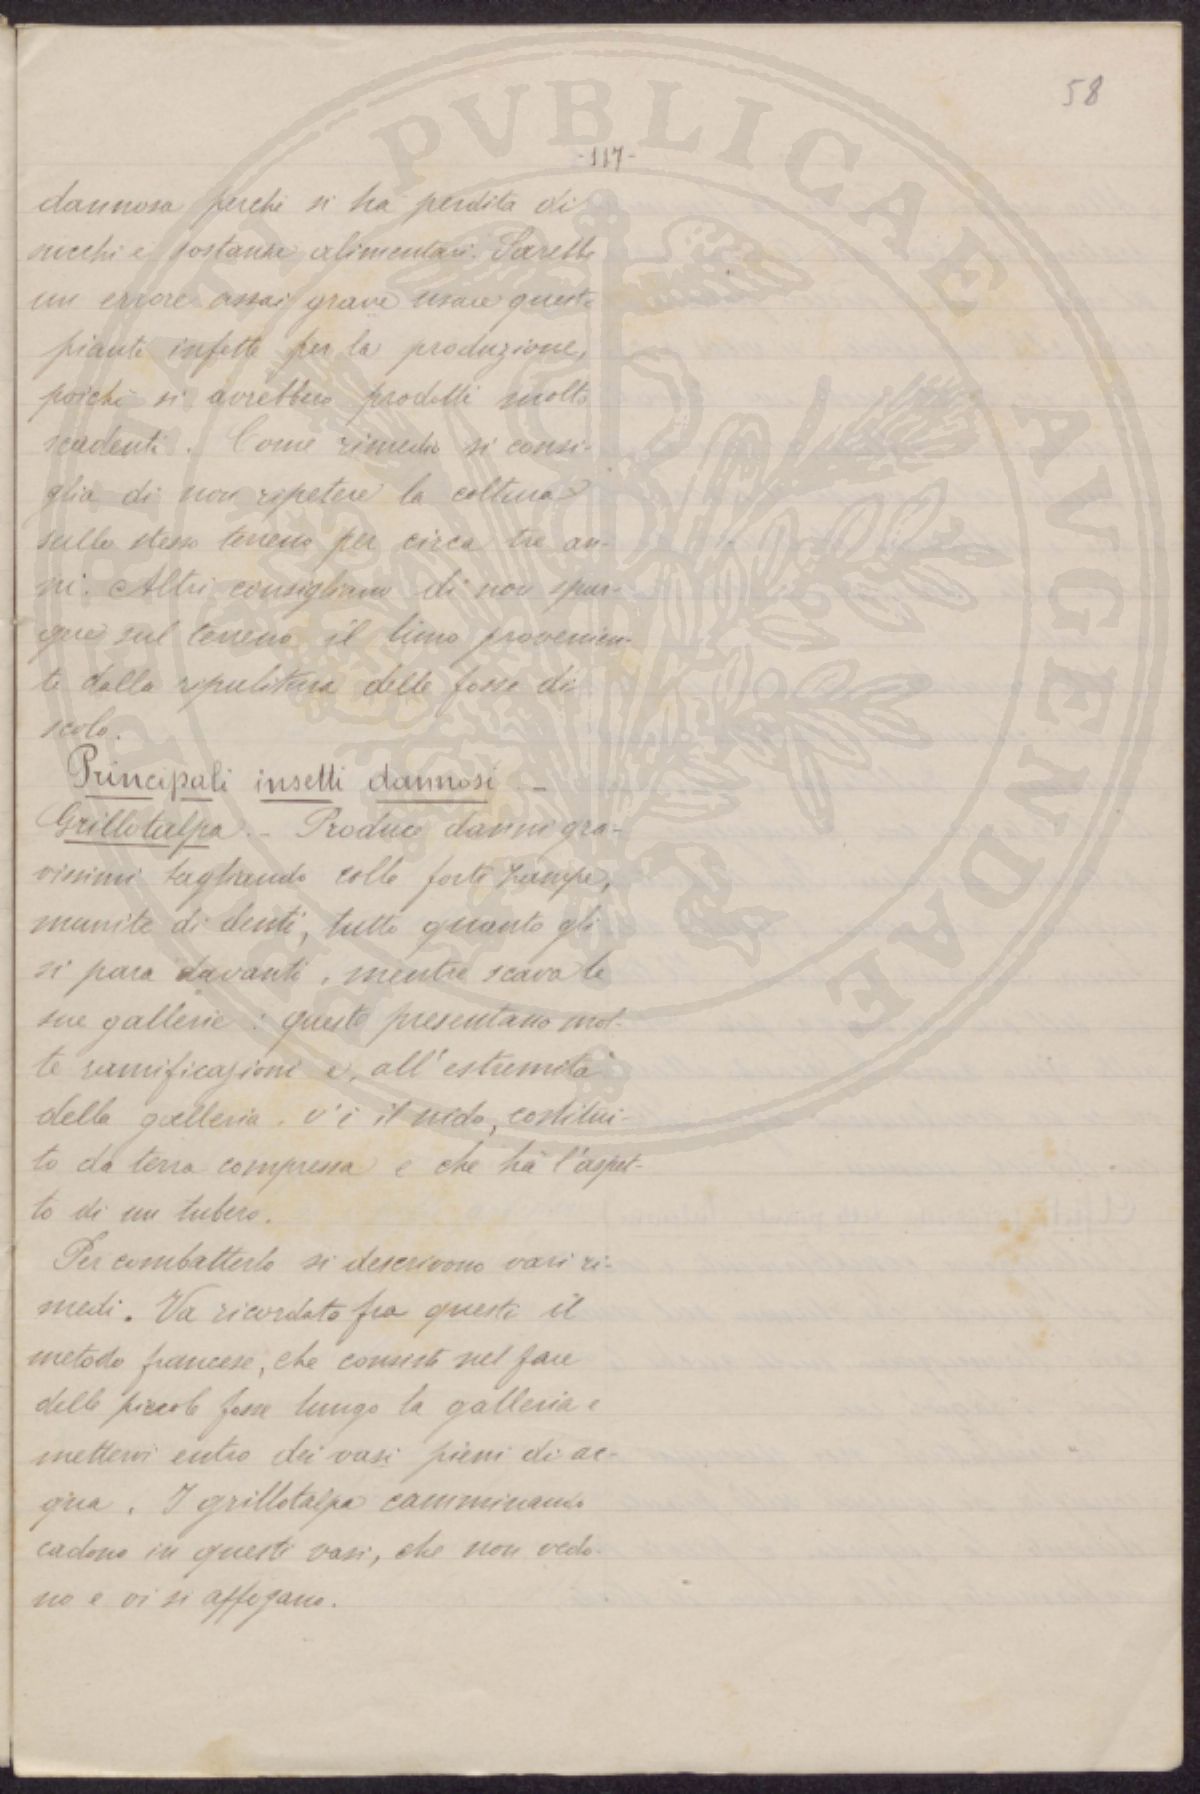 58
-117-
dannosa perchè si ha perdita di
succhi e sostanze alimentari. Sarebbe
un errore assai grave usare queste
piante infette per la produzione,
poichè si avrebbero prodotti molto
scadenti. Come rimedio si consi-
glia di non ripetere la coltura
sullo stesso terreno per circa tre an-
ni. Altri consigliano di non spar-
gere sul terreno il limo provenien-
te dalla ripulitura delle fosse di
scolo.
Principali insetti dannosi -
Grillotalpa. - Produce danni gra-
vissimi tagliando colle forti zampe,
munite di denti, tutto quanto gli
si para davanti, mentre scava le
sue gallerie: queste presentano mol-
te ramificazioni e, all'estremità
della galleria, v'è il nido, costitui-
to da terra compressa e che ha l'aspet-
to di un tubero.
Per combatterlo si descrivono vari ri-
medi. Va ricordato fra questi il
metodo francese, che consiste nel fare
delle piccole fosse lungo la galleria e
mettervi entro dei vasi pieni di ac-
qua. I grillotalpa camminando
cadono in questi vasi, che non vedo-
no e vi si affogano.
PVBLICAE AVGENDAE